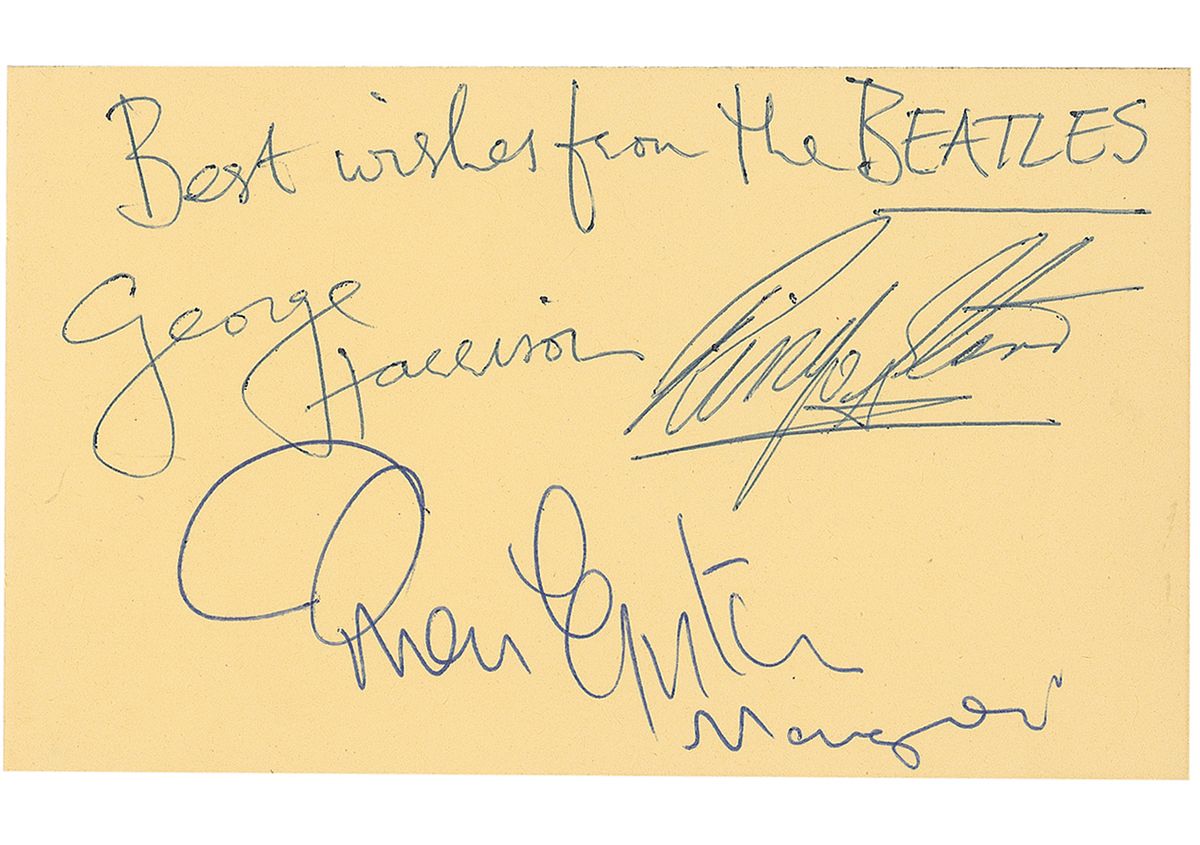 Best wishes from the BEATLES
George Harrison
Ringo Starr
Brian Epstein
Manager